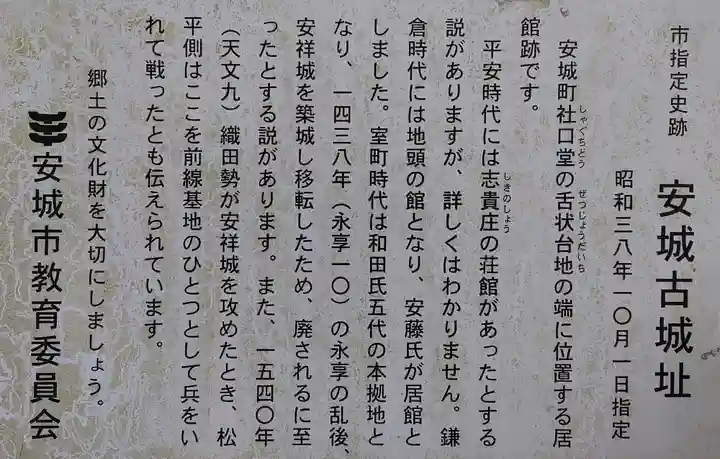 市指定史跡
安城古城址
昭和三八年一〇月一日指定
安城町社口堂の舌状台地の端に位置する居
しゃぐちどう
ぜつじょうだいち
館跡です。
平安時代には志貴庄の荘館があったとする
しきのしょう
説がありますが、詳しくはわかりません。鎌
倉時代には地頭の館となり、安藤氏が居館と
しました。室町時代は和田氏五代の本拠地と
なり、一四三八年（永享一〇）の永享の乱後、
安祥城を築城し移転したため、廃されるに至
ったとする説があります。また、一五四〇年
（天文九）織田勢が安祥城を攻めたとき、松
平側はここを前線基地のひとつとして兵をい
れて戦ったとも伝えられています。
郷土の文化財を大切にしましょう。
安城市教育委員会